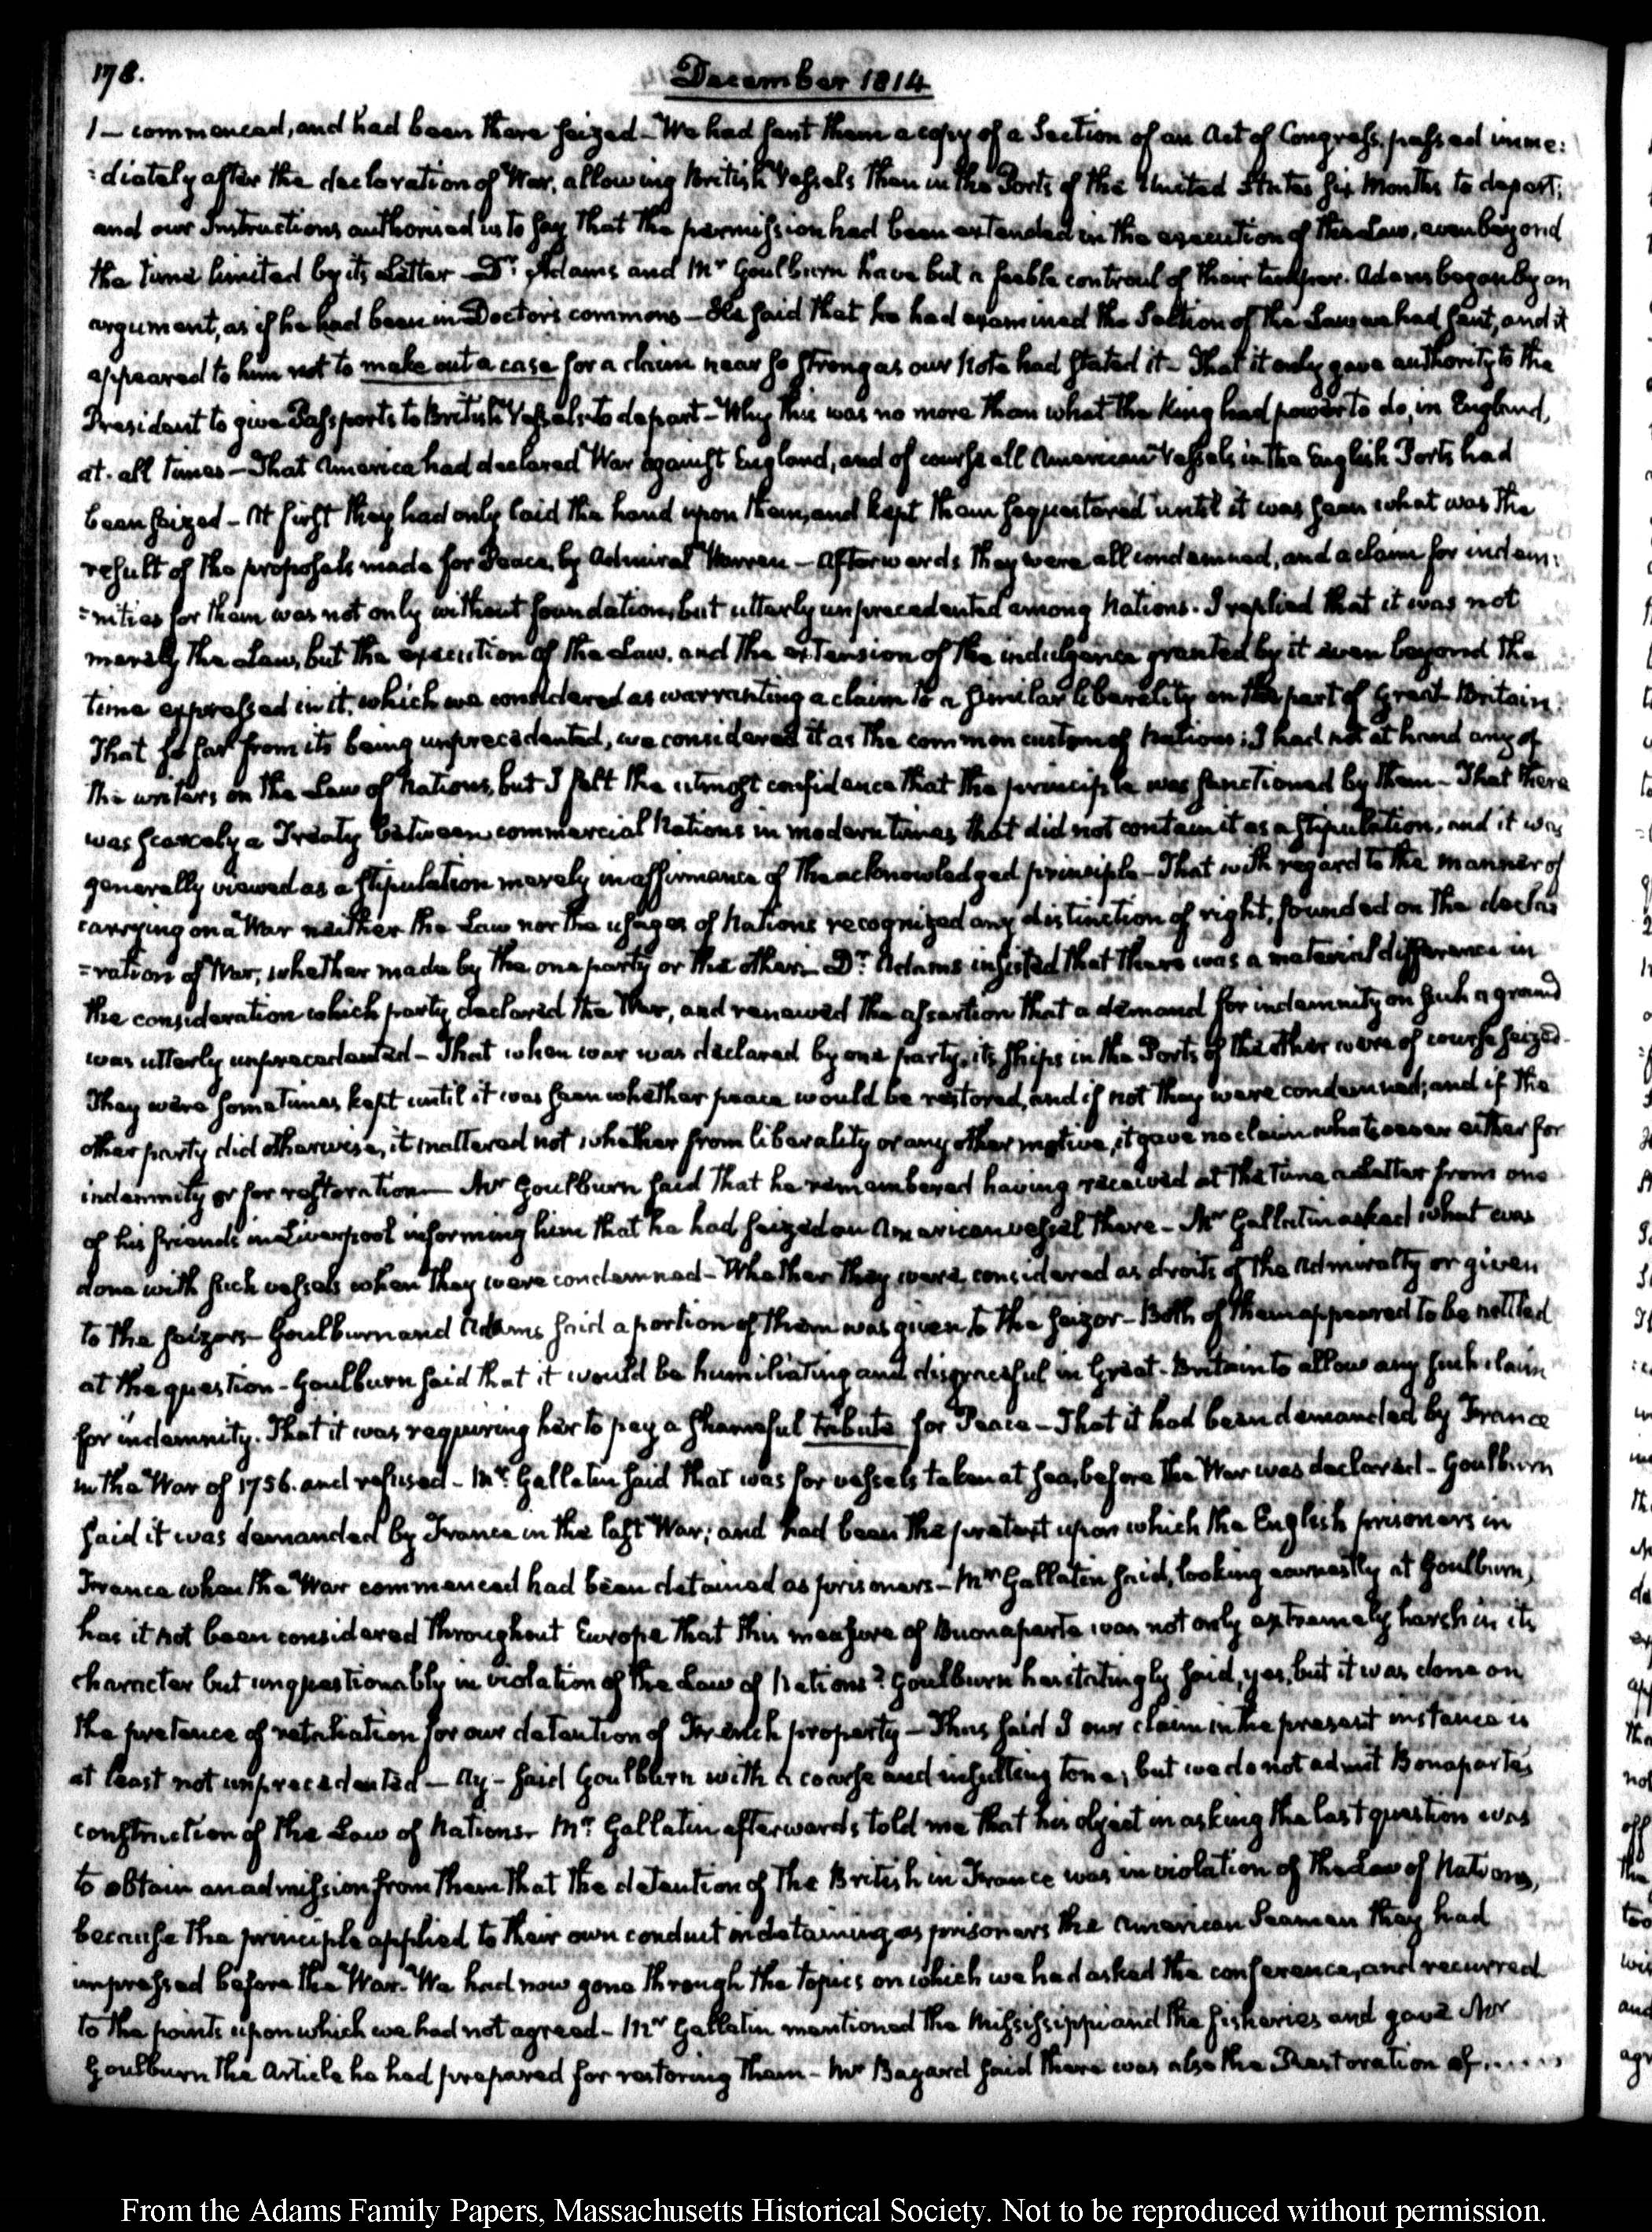 178.
December 1814
1 — commenced, and had been there seized — We had sent them a copy of a Section of an Act of Congress, passed imme:
:diately after the declaration of War, allowing British Vessels then in the Ports of the United States six Months to depart;
and our Instructions authorised us to say that the permission had been extended in the execution of the Law, even beyond
the time limited by its Letter — Dr. Adams and Mr Goulburn have but a feeble controul of their temper. Adams began by an
argument, as if he had been in Doctor's commons — He said that he had examined the Section of the Law we had sent, and it
appeared to him not to make out a case for a claim near so strong as our Note had stated it — That it only gave authority to the
President to give Passports to British Vessels to depart — Why this was no more than what the King had power to do, in England,
at all times — That America had declared War against England, and of course all American Vessels in the English Ports had
been seized — At first they had only laid the hand upon them, and kept them sequestered until it was seen what was the
result of the proposals made for Peace, by Admiral Warren — Afterwards they were all condemned, and a claim for indem:
=nities for them was not only without foundation, but utterly unprecedented among Nations. I replied that it was not
merely the Law, but the execution of the Law, and the extension of the indulgence granted by it even beyond the
time expressed in it, which we considered as warranting a claim to a similar liberality on the part of Great-Britain.
That so far from its being unprecedented, we considered it as the common custom of Nations; I had not at hand any of
the writers on the Law of Nations, but I felt the utmost confidence that the principle was sanctioned by them — That there
was scarcely a Treaty between commercial Nations in modern times that did not contain it as a stipulation, and it was
generally viewed as a stipulation merely in affirmance of the acknowledged principle — That with regard to the manner of
carrying on a War neither the Law nor the usages of Nations recognized any distinction of right, founded on the decla:
=ration of War, whether made by the one party or the other. — Dr. Adams insisted that there was a material difference in
the consideration which party declared the War, and renewed the assertion that a demand for indemnity on such a ground
was utterly unprecedented — That when war was declared by one party, its ships in the Ports of the other were of course seized.
They were sometimes kept until it was seen whether peace would be restored, and if not they were condemned; and if the
other party did otherwise, it mattered not whether from liberality or any other motive, it gave no claim whatsoever either for
indemnity or for restoration — Mr Goulburn said that he remembered having received at the time a Letter from one
of his friends in Liverpool informing him that he had seized an American vessel there — Mr Gallatin asked what was
done with such vessels when they were condemned — Whether they were considered as droits of the Admiralty or given
to the seizors — Goulburn and Adams said a portion of them was given to the seizor — Both of them appeared to be nettled
at the question — Goulburn said that it would be humiliating and disgraceful in Great-Britain to allow any such claim
for indemnity. That it was requiring her to pay a shameful tribute for Peace — That it had been demanded by France
in the War of 1756. and refused — Mr. Gallatin said that was for vessels taken at sea, before the War was declared — Goulburn
said it was demanded by France in the last War; and had been the pretext upon which the English prisoners in
France when the War commenced had been detained as prisoners — Mr Gallatin said, looking earnestly at Goulburn,
has it not been considered throughout Europe that this measure of Buonaparte was not only extremely harsh in its
character but unquestionably in violation of the Law of Nations? Goulburn hesitatingly said, yes, but it was done on
the pretence of retaliation for our detention of French property — Thus said I our claim in the present instance is
at least not unprecedented — Ay — said Goulburn with a coarse and insulting tone; but we do not admit Bonaparte's
construction of the Law of Nations — Mr. Gallatin afterwards told me that his object in asking the last question was
to obtain an admission from them that the detention of the British in France was in violation of the Law of Nations,
because the principle applied to their own conduct in detaining as prisoners the American Seamen they had
impressed before the War. We had now gone through the topics on which we had asked the conference, and recurred
to the points upon which we had not agreed — Mr Gallatin mentioned the Mississippi and the fisheries and gave Mr
Goulburn the Article he had prepared for restoring them — Mr Bayard said there was also the Restoration of.....
From the Adams Family Papers, Massachusetts Historical Society. Not to be reproduced without permission.